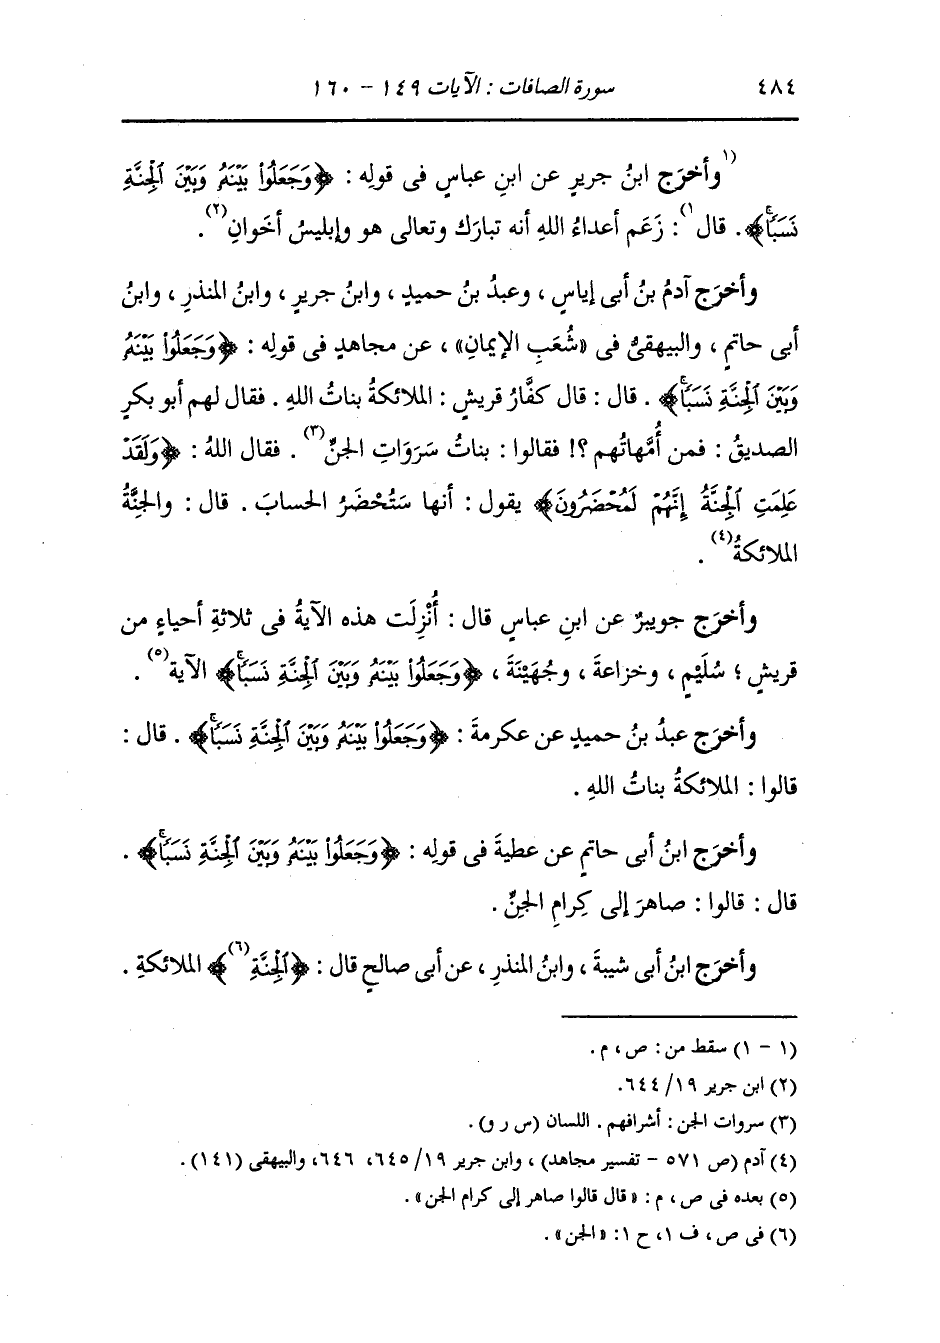 ٤٨٤ سورة الصافات : الآيات ١٤٩ - ١٦٠
(١ وأخرَج ابنُ جريرٍ عن ابنِ عباسٍ فى قولِه : ﴿وَجَعَلُوا۟ بَيْنَهُۥ وَبَيْنَ ٱلْجِنَّةِ
نَسَبًاۚ﴾. قال ١) : زَعَم أعداءُ اللهِ أنه تبارَك وتعالى هو وإبليسُ أخَوانِ(٢) .
وأخرَج آدمُ بنُ أبى إياسٍ ، وعبدُ بنُ حميدٍ ، وابنُ جريرٍ ، وابنُ المنذرِ ، وابنُ
أبى حاتمٍ ، والبيهقىُّ فى «شُعَبِ الإيمانِ» ، عن مجاهدٍ فى قولِه : ﴿وَجَعَلُوا۟ بَيْنَهُۥ
وَبَيْنَ ٱلْجِنَّةِ نَسَبًاۚ﴾ . قال : قال كفَّارُ قريشٍ : الملائكةُ بناتُ اللهِ . فقال لهم أبو بكرٍ
الصديقُ : فمن أُمَّهاتُهم ؟! فقالوا : بناتُ سَرَواتِ الجنِّ(٣) . فقال اللهُ : ﴿وَلَقَدْ
عَلِمَتِ ٱلْجِنَّةُ إِنَّهُمْ لَمُحْضَرُونَ﴾ يقول : أنها ستُحْضَرُ الحسابَ . قال : والجِنَّةُ
الملائكةُ(٤) .
وأخرَج جويبرٌ عن ابنِ عباسٍ قال : أُنْزِلَت هذه الآيةُ فى ثلاثةِ أحياءٍ من
قريشٍ ؛ سُلَيْمٍ ، وخزاعةَ ، وجُهَيْنَةَ ، ﴿وَجَعَلُوا۟ بَيْنَهُۥ وَبَيْنَ ٱلْجِنَّةِ نَسَبًاۚ﴾ الآية(٥) .
وأخرَج عبدُ بنُ حميدٍ عن عكرمةَ : ﴿وَجَعَلُوا۟ بَيْنَهُۥ وَبَيْنَ ٱلْجِنَّةِ نَسَبًاۚ﴾ . قال :
قالوا : الملائكةُ بناتُ اللهِ .
وأخرَج ابنُ أبى حاتمٍ عن عطيةَ فى قولِه : ﴿وَجَعَلُوا۟ بَيْنَهُۥ وَبَيْنَ ٱلْجِنَّةِ نَسَبًاۚ﴾ .
قال : قالوا : صاهرَ إلى كِرامِ الجنِّ .
وأخرَج ابنُ أبى شيبةَ ، وابنُ المنذرِ ، عن أبى صالحٍ قال : ﴿ٱلْجِنَّةِ(٦)﴾ الملائكةِ .
(١ - ١) سقط من : ص ، م .
(٢) ابن جرير ١٩/ ٦٤٤.
(٣) سروات الجن : أشرافهم . اللسان (س ر و) .
(٤) آدم (ص ٥٧١ - تفسير مجاهد) ، وابن جرير ١٩/ ٦٤٥، ٦٤٦، والبيهقى (١٤١) .
(٥) بعده فى ص ، م : « قال قالوا صاهر إلى كرام الجن» .
(٦) فى ص ، ف ١، ح ١: «الجن» .